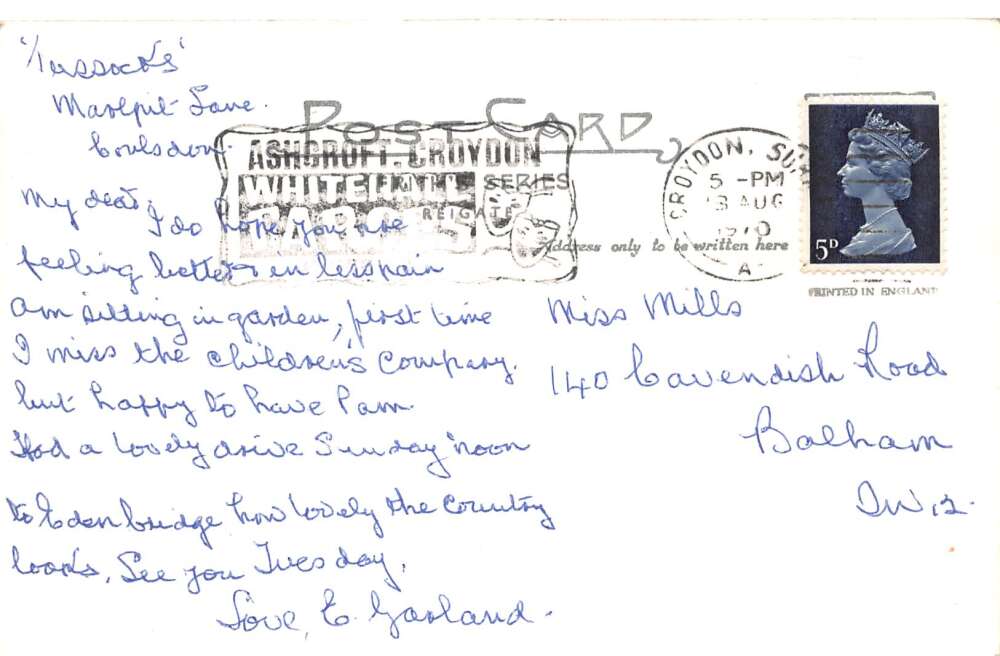 'Tussocks'
Marlpit Lane.
Coulsdon.
POST CARD
ASHCROFT. CROYDON
WHITEHALL
FARCES
SERIES
REIGATE
CROYDON, SU
5 -PM
13 AUG
1970
A
5D
Address only to be written here
PRINTED IN ENGLAND
My dear,
I do hope you are
feeling better & in less pain
am sitting in garden, first time
I miss the children's company.
but happy to have Pam.
Had a lovely drive Sunday 'noon
to Edenbridge how lovely the country
looks, See you Tuesday,
Love, E. Garland.
Miss Mills
140 Cavendish Road
Balham
SW12.